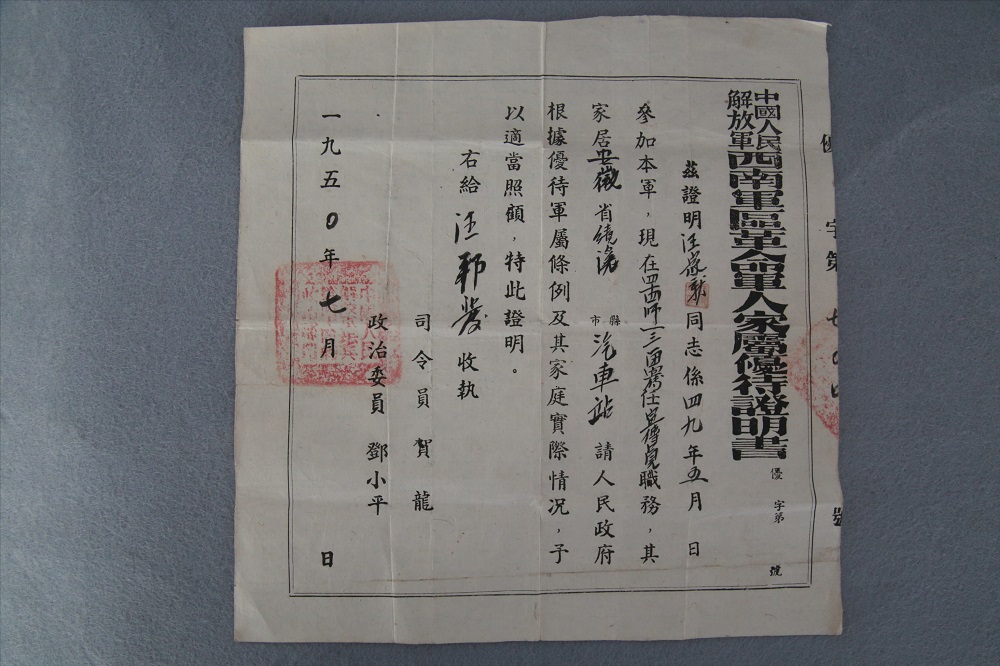 優 字第 七〇四 號
中國人民解放軍西南軍區革命軍人家屬優待證明書
優 字第 號
茲證明汪 同志係四九年五月 日
參加本軍，現在 師一三 任宣傳員職務，其
家居安徽省績溪縣市汽車站請人民政府
根據優待軍屬條例及其家庭實際情況，予
以適當照顧，特此證明。
右給汪 收執
司令員 賀龍
政治委員 鄧小平
一九五〇年七月 日